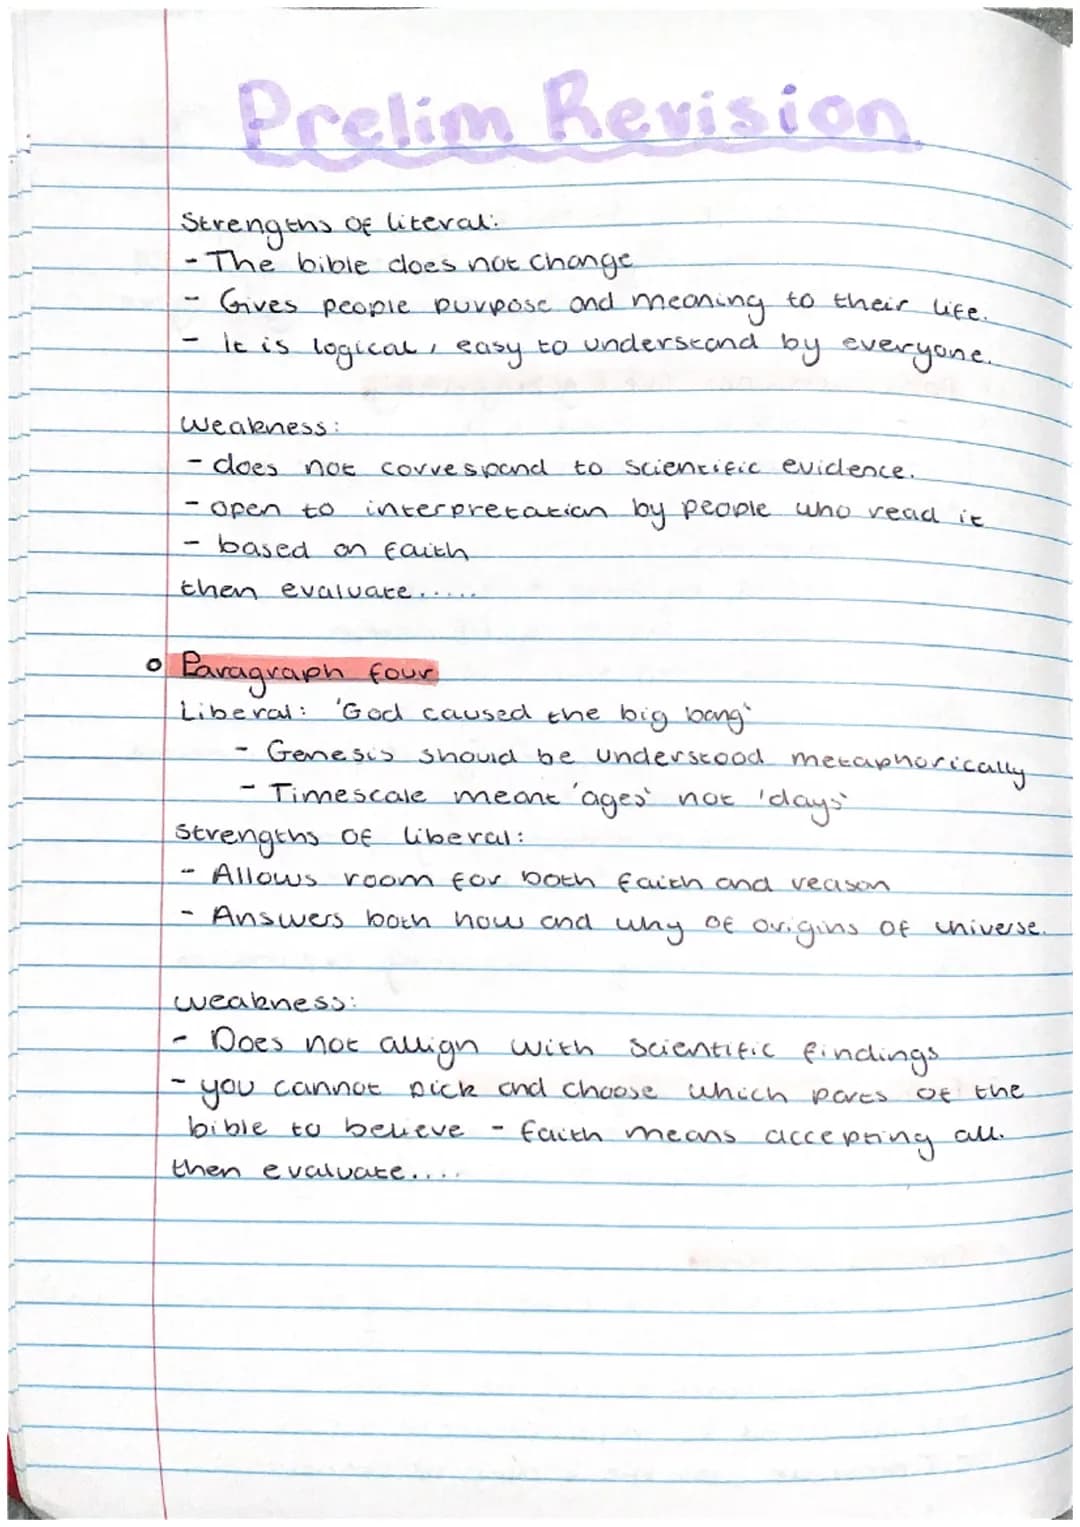 Prelim Revision
Strengths of literal:
- The bible does not change
- Gives people purpose and meaning to their life.
- It is logical, easy to understand by everyone.
Weakness:
- does not correspond to scientific evidence.
- open to interpretation by people who read it
- based on faith
then evaluate.....
Paragraph four
Liberal: 'God caused the big bang'
- Genesis should be understood metaphorically
- Timescale meant 'ages' not 'days'
Strengths of liberal:
- Allows room for both faith and reason
- Answers both how and why of origins of universe.
weakness:
- Does not allign with scientific findings
- you cannot pick and choose which parts of the
bible to believe - faith means accepting all.
then evaluate....